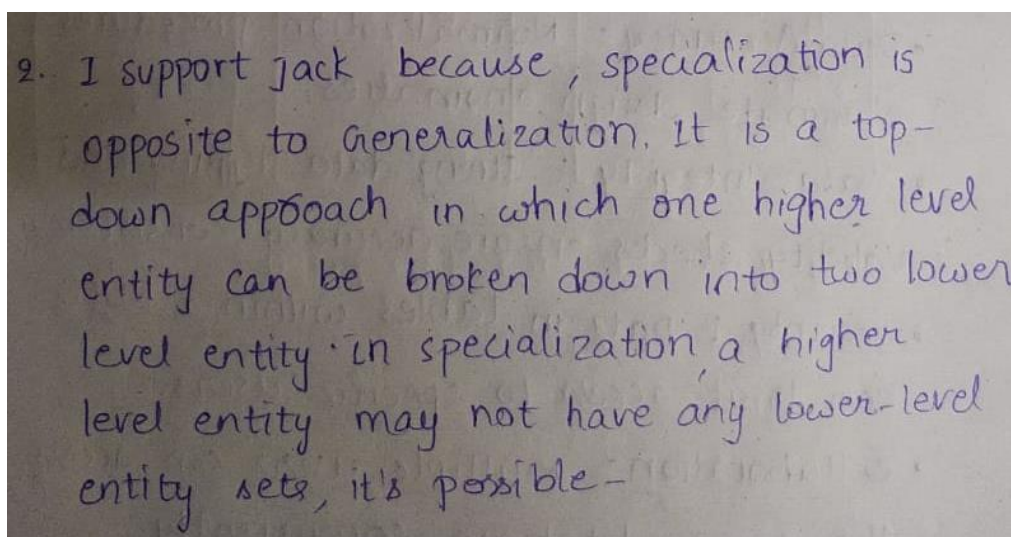 2. I support jack because, specialization is
opposite to Generalization. It is a top-
down approoach in which one higher level
entity can be broken down into two lower
level entity. in specialization, a higher
level entity may not have any lower-level
entity sets, it's possible-